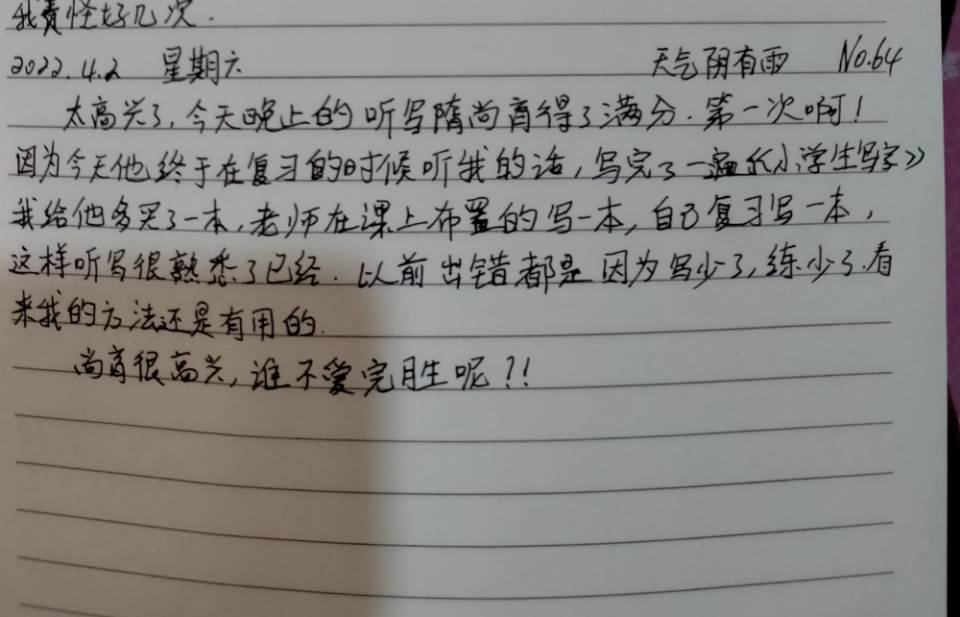 我责怪好几次.
2022.4.2 星期六 天气阴有雨 No.64
太高兴了,今天晚上的听写隋尚育得了满分.第一次啊!
因为今天他终于在复习的时候听我的话,写完了一遍《小学生写字》
我给他多买了一本,老师在课上布置的写一本,自己复习写一本,
这样听写很熟悉了已经.以前出错都是因为写少了,练少了.看
来我的方法还是有用的.
尚育很高兴,谁不爱完胜呢?!!